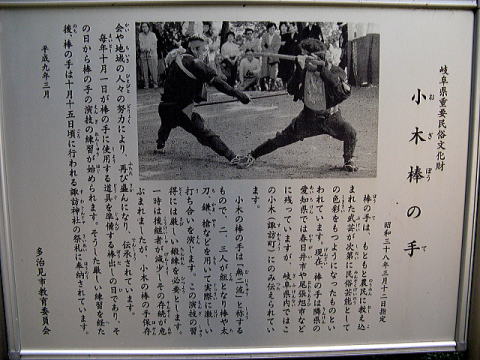 岐阜県重要民俗文化財
小木棒の手
おぎぼうて
昭和三十八年三月十二日指定
棒の手は、もともと農民に教え込
まれた武芸が次第に民俗芸能として
の色彩をもつようになったものとい
われています。現在、棒の手は隣県の
愛知県では春日井市や尾張旭市など
に残っていますが、岐阜県内ではこ
の小木(諏訪町)にのみ伝えられてい
ます。
小木の棒の手は「無二流」と称する
もので、二、三人が組となり棒や太
刀、鎌、槍などを用いて実際に激しい
打ち合いを演じます。この演技の習
得には厳しい鍛練を必要とします。
一時は後継者が減少し、その存続が危
ぶまれましたが、小木の棒の手保存
会や地域の人々の努力により、再び盛んになり、伝承されています。
毎年十月一日が棒の手に使用する道具を準備する棒出しの日であり、そ
の日から棒の手の演技の練習が始められます。そうした厳しい練習を経た
後、棒の手は十月十五日頃に行われる諏訪神社の祭礼に奉納されています。
平成九年三月
多治見市教育委員会